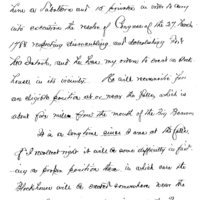 him a Subaltern and 15 privates in order to carry
into execution the resolve of Congress of the 27 March
1788 respecting dismantling and
and he has my orders to erect a Block
house in its vicinity. He will reconnoitre for
an eligible position at or near the falls, which is
about five miles from the mouth of the Big Beaver
It is a long time since I was at the falls
if I recollect right it will be some difficulty in find-
ing a proper position there in which case the
Blockhouse will be erected somewhere near the